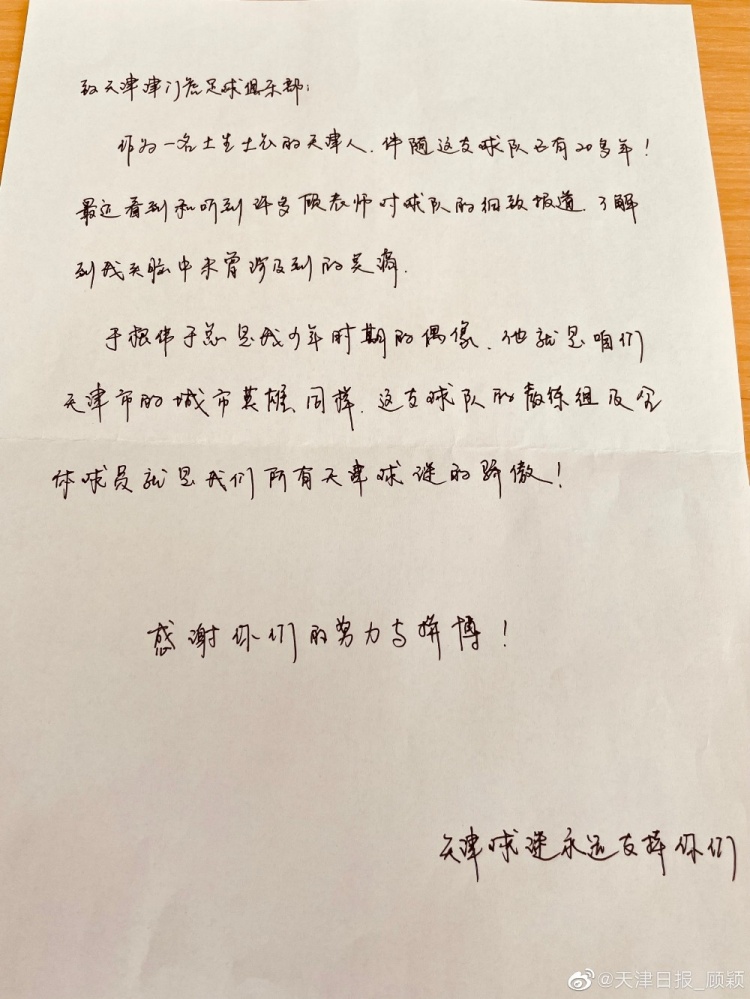 致天津津门虎足球俱乐部：
作为一名土生土长的天津人，伴随这支球队已有20多年！
最近看到和听到许多顾老师对球队的细致报道，了解
到我头脑中未曾涉及到的
于根伟于总是我少年时期的偶像，他就是咱们
天津市的城市英雄，同样，这支球队的教练组及全
体球员就是我们所有天津球迷的骄傲！
感谢你们的努力与拼博！
天津球迷永远支持你们
@天津日报_顾颖